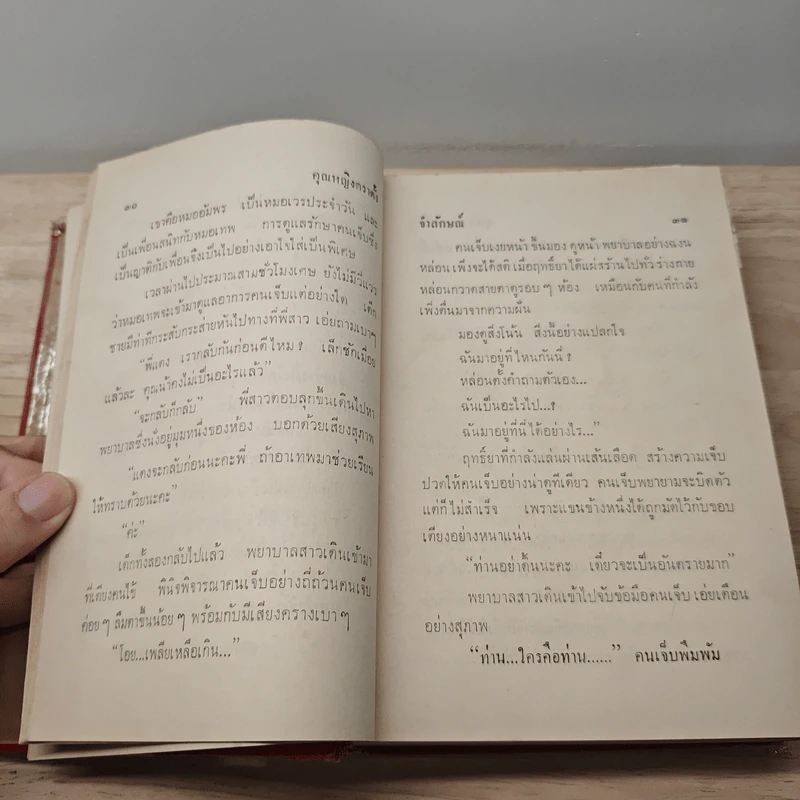 ๓๐
คุณหญิงตราตั้ง
เขาคือหมออัมพร เป็นหมอเวรประจำวัน และ
เป็นเพื่อนสนิทกับหมอเทพ การดูแลรักษาคนเจ็บซึ่ง
เป็นญาติกับเพื่อนจึงเป็นไปอย่างเอาใจใส่เป็นพิเศษ
เวลาผ่านไปประมาณสามชั่วโมงเศษ ยังไม่มีวี่แวว
ว่าหมอเทพจะเข้ามาดูแลอาการคนเจ็บแต่อย่างใด เด็ก
ชายมีท่าทีกระสับกระส่ายหันไปทางที่พี่สาว เอ่ยถามเบาๆ
“พี่แดง เรากลับกันก่อนดีไหม? เล็กชักเมื่อย
แล้วละ คุณน้าคงไม่เป็นอะไรแล้ว”
“จะกลับก็กลับ” พี่สาวตอบลุกขึ้นเดินไปหา
พยาบาลซึ่งนั่งอยู่มุมหนึ่งของห้อง บอกด้วยเสียงสุภาพ
“แดงจะกลับก่อนนะคะพี่ ถ้าอาเทพมาช่วยเรียน
ให้ทราบด้วยนะคะ”
“ค่ะ”
เด็กทั้งสองกลับไปแล้ว พยาบาลสาวเดินเข้ามา
ที่เตียงคนไข้ พินิจพิจารณาคนเจ็บอย่างถี่ถ้วนคนเจ็บ
ค่อยๆ ลืมตาขึ้นน้อยๆ พร้อมกับมีเสียงครางเบาๆ
“โอย...เพลียเหลือเกิน...”
จำลักษณ์
๓๑
คนเจ็บเงยหน้า ขึ้นมอง ดูหน้า พยาบาลอย่างฉงน
หล่อน เพิ่งจะได้สติ เมื่อฤทธิ์ยาได้แผ่สร้านไปทั่วร่างกาย
หล่อนกวาดสายตาดูรอบๆ ห้อง เหมือนกับคนที่กำลัง
เพิ่งตื่นมาจากความฝัน
มองดูสิ่งโน้น สิ่งนี้อย่างแปลกใจ
ฉันมาอยู่ที่ไหนกันนี่?
หล่อนตั้งคำถามตัวเอง...
ฉันเป็นอะไรไป...?
ฉันมาอยู่ที่นี่ได้อย่างไร...”
ฤทธิ์ยาที่กำลังแล่นผ่านเส้นเลือด สร้างความเจ็บ
ปวดให้คนเจ็บอย่างน่าดูทีเดียว คนเจ็บพยายามจะบิดตัว
แต่ก็ไม่สำเร็จ เพราะแขนข้างหนึ่งได้ถูกมัดไว้กับขอบ
เตียงอย่างหนาแน่น
“ท่านอย่าดิ้นนะคะ เดี๋ยวจะเป็นอันตรายมาก”
พยาบาลสาวเดินเข้าไปจับข้อมือคนเจ็บ เอ่ยเตือน
อย่างสุภาพ
“ท่าน...ใครคือท่าน......” คนเจ็บพึมพำ